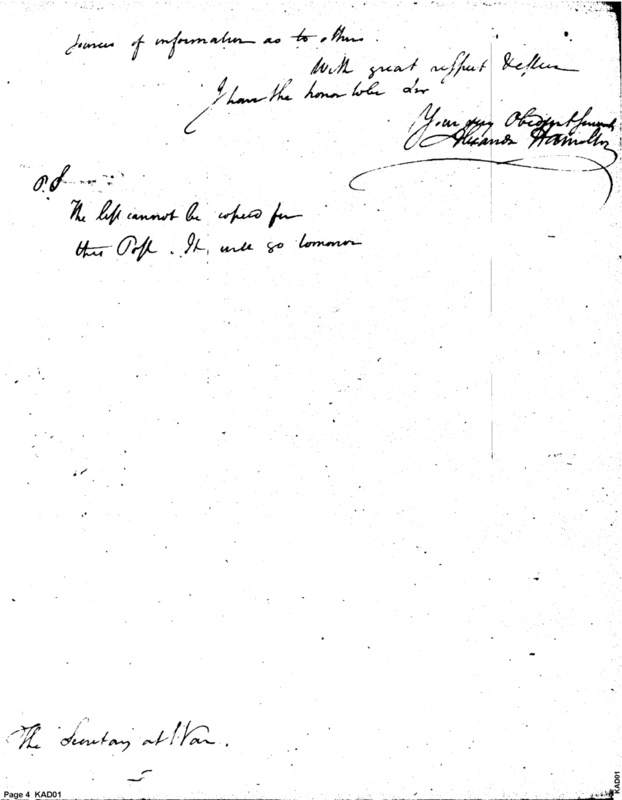 sources of information as to others.
With great respect & esteem
I have the honor to be Sir
Your very Obedient Servant
Alexander Hamilton
P.S
The list cannot be copied for
this Post. It will go tomorrow
The Secretary at War.
Page 4 KAD01
KAD01